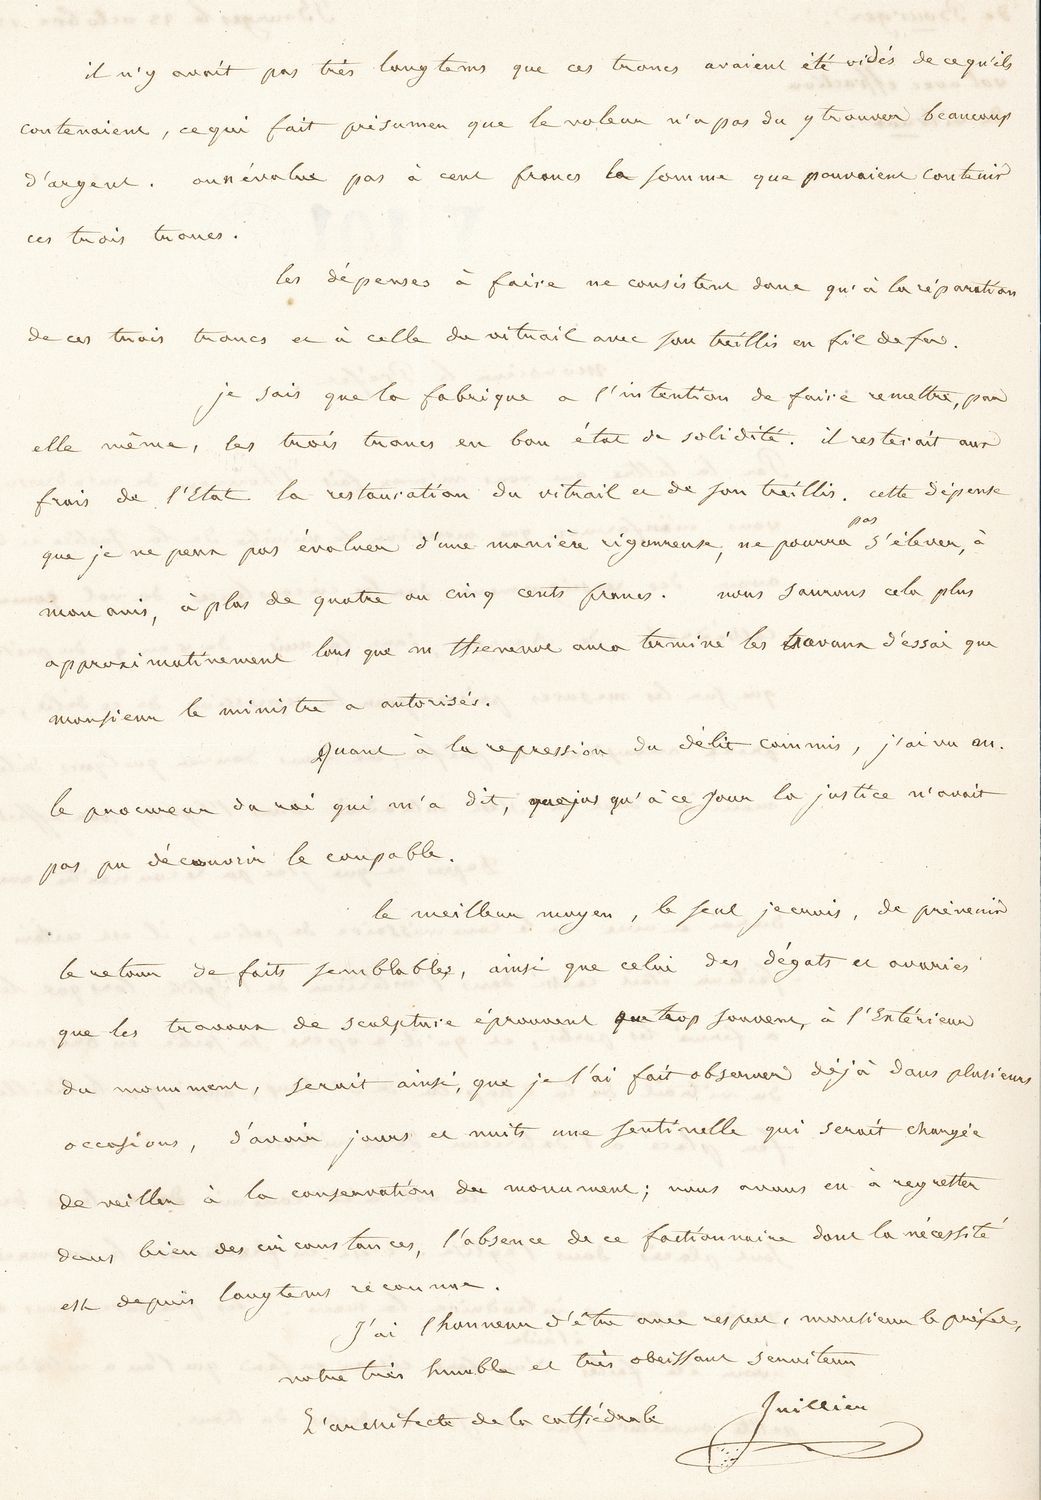 il n'y avait pas très longtems que ces troncs avaient été vidés de ce qu'ils
contenaient, ce qui fait présumer que le voleur n'a pas du y trouver beaucoup
d'argent. on n'évalue pas à cent francs la somme que pouvaient contenir
ces trois troncs.
les dépenses à faire ne consistent donc qu'à la réparation
de ces trois troncs et à celle du vitrail avec son treillis en fil de fer.
je sais que la fabrique a l'intention de faire remettre, par
elle même, les trois troncs en bon état de solidité. il resterait aux
frais de l'Etat la restauration du vitrail et de son treillis. cette dépense
que je ne peux pas évaluer d'une manière rigoureuse, ne pourra pas s'élever, à
mon avis, à plus de quatre ou cinq cents francs. nous saurons cela plus
approximativement lors que m Thevenot aura terminé les travaux d'essai que
monsieur le ministre a autorisés.
Quant à la repression du délit commis, j'ai vu m.
le procureur du roi qui m'a dit, que jusqu'à ce jour la justice n'avait
pas pu découvrir le coupable.
le meilleur moyen, le seul je crois, de prévenir
le retour de faits semblables, ainsi que celui des dégats et avaries
que les travaux de sculpture éprouvent trop souvent, à l'Extérieur
du monument, serait ainsi, que je l'ai fait observer déjà dans plusieurs
occasions, d'avoir jours et nuits une sentinelle qui serait chargée
de veiller à la conservation du monument; nous avons eu à regretter
dans bien des circonstances, l'absence de ce factionnaire dont la nécessité
est depuis longtems reconnue.
J'ai l'honneur d'être avec respect, monsieur le préfet,
votre très humble et très obeissant serviteur
L'architecte de la cathédrale Juillien